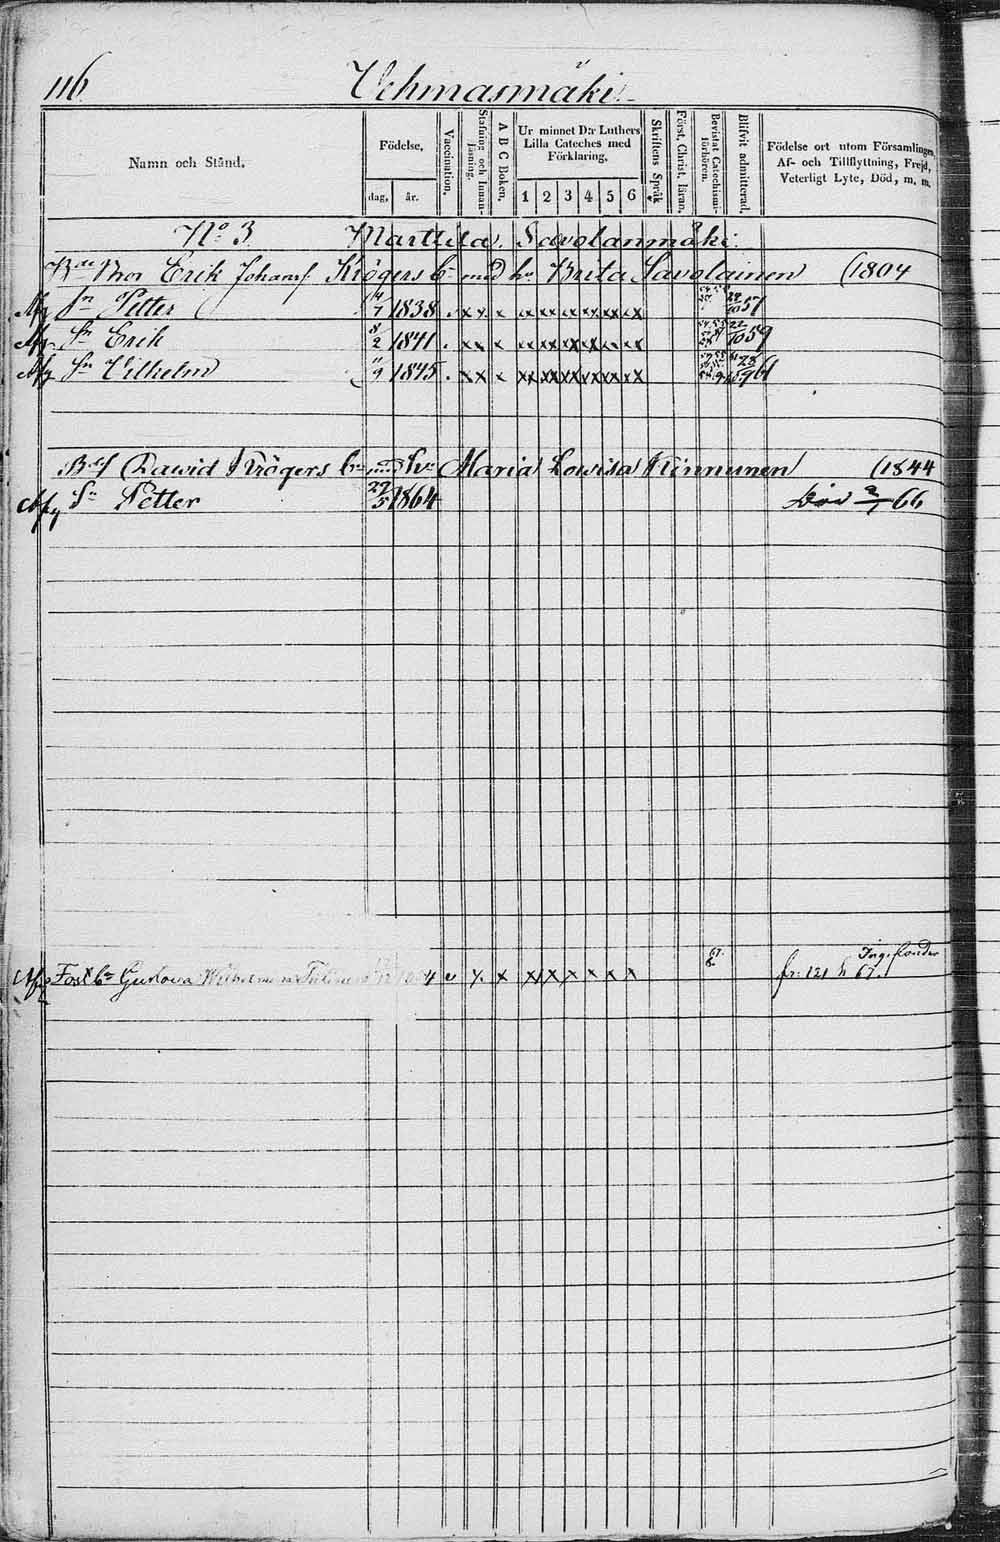 116. Vehmasmäki
Namn och Stånd.
Födelse,
dag, år.
Vaccination.
Stafning och Innanläsning.
A B C Boken.
Ur minnet D:r Luthers Lilla Cateches med Förklaring.
1 2 3 4 5 6
Skriftens Språk
Först. Christ. läran.
Bevistat Catechismiförhören.
Blifvit admitterad.
Födelse ort utom Församlingen, Af- och Tillflyttning, Frejd, Veterligt Lyte, Död, m. m.
No 3 Marttila. Savolanmäki.
Bror Erik Johans Krögers br med hu Brita Savolainen (1804
Sn Petter 1838 x x x xx xx xx xx xx xx 57
Sn Erik 8/2 1841 x x x xx xx xx xx xx xx 22/10 59
Sn Vilhelm 11/9 1845 x x x xx xx xx xx xx xx 28/9 61
Dawid Krögers br med hu Maria Lowisa Kinnunen (1844
Sn Petter 27/5 1864 Död 66
67. Inga
Gustova Wilhelmina 4 v x x x x x x x x fr. 121 h 67.